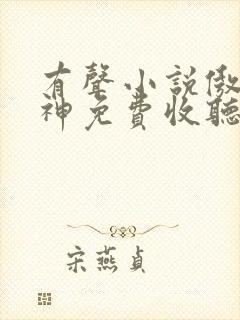 有聲小說傲
神免費收聽
宋燕貞